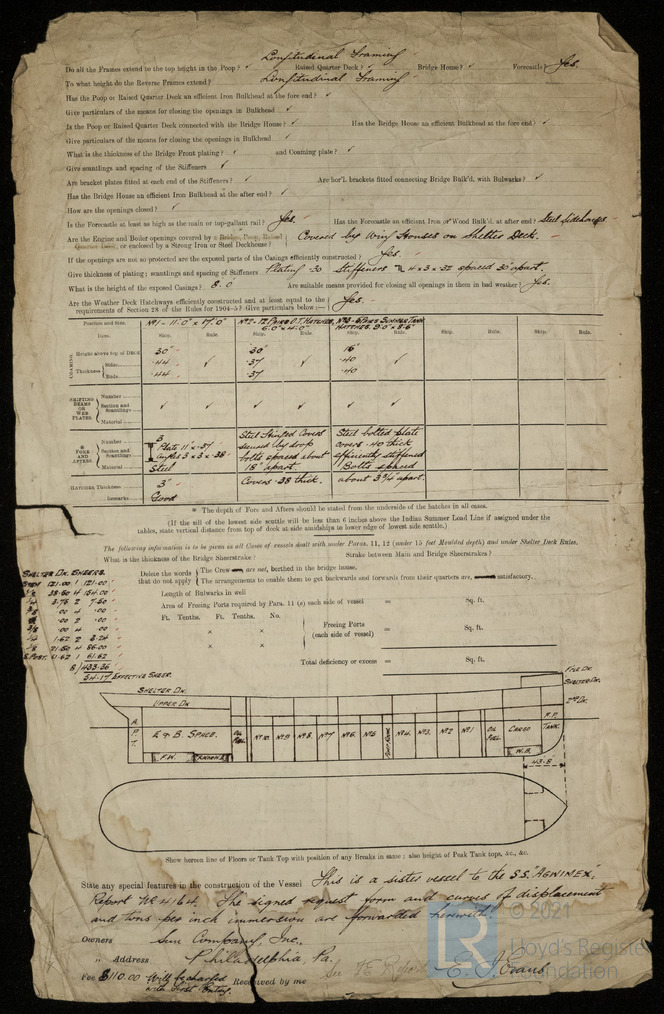 Longitudinal Framing
Do all the Frames extend to the top height in the Poop? ✓ Raised Quarter Deck? ✓ Bridge House? ✓ Forecastle? Yes.
Longitudinal Framing
To what height do the Reverse Frames extend?
Has the Poop or Raised Quarter Deck an efficient Iron Bulkhead at the fore end? ✓
Give particulars of the means for closing the openings in Bulkhead ✓
Is the Poop or Raised Quarter Deck connected with the Bridge House? ✓ Has the Bridge House an efficient Bulkhead at the fore end? ✓
Give particulars of the means for closing the openings in Bulkhead ✓
What is the thickness of the Bridge Front plating? ✓ and Coaming plate? ✓
Give scantlings and spacing of the Stiffeners ✓
Are bracket plates fitted at each end of the Stiffeners? ✓ Are hor'l. brackets fitted connecting Bridge Bulk'd. with Bulwarks? ✓
Has the Bridge House an efficient Iron Bulkhead at the after end? ✓
How are the openings closed? ✓
Is the Forecastle at least as high as the main or top-gallant rail? Yes. Has the Forecastle an efficient Iron or Wood Bulk'd. at after end? Steel Sidehouses
Are the Engine and Boiler openings covered by a Bridge, Poop, Raised
Quarter Deck, or enclosed by a Strong Iron or Steel Deckhouse? Covered by Wing Houses on Shelter Deck.
If the openings are not so protected are the exposed parts of the Casings efficiently constructed? Yes.
Give thickness of plating; scantlings and spacing of Stiffeners Plating .30 Stiffeners 4 x 3 x .32 spaced 30" apart.
What is the height of the exposed Casings? 8.0 Are suitable means provided for closing all openings in them in bad weather? Yes.
Are the Weather Deck Hatchways efficiently constructed and at least equal to the
requirements of Section 28 of the Rules for 1904-5? Give particulars below:— Yes.
Position and Size. Nº1 - 11'.0" x 17'.0" Nº2 - 12 Pairs O.T. Hatches, 6'.0" x 4'.0" Summer Tank Hatches. 9'.0" x 8'.6"
Item. Ship. Rule. Ship. Rule. Ship. Rule. Ship. Rule. Ship. Rule.
COAMING Height above top of DECK 30" 30" 16"
Thickness Sides .44 ✓ .37 ✓ .40 ✓
Ends .44 .37 .40
SHIFTING BEAMS OR WEB PLATES. Number
Section and Scantlings ✓ ✓ ✓ ✓ ✓ ✓
Material
* FORE AND AFTERS. Number 3 Steel Hinged Covers Steel bolted plate
Section and Scantlings Plate 11" x .37 secured by drop covers .40 thick
Angles 3 x 3 x .38 bolts spaced about efficiently stiffened
Material Steel 18" apart. Bolts spaced
HATCHES Thickness 3" Covers .38 thick. about 3 3/4 apart.
Remarks Good
* The depth of Fore and Afters should be stated from the underside of the hatches in all cases.
(If the sill of the lowest side scuttle will be less than 6 inches above the Indian Summer Load Line if assigned under the
tables, state vertical distance from top of deck at side amidships to lower edge of lowest side scuttle.)
The following information is to be given in all Cases of vessels dealt with under Paras. 11, 12 (under 15 feet Moulded depth) and under Shelter Deck Rules.
What is the thickness of the Bridge Sheerstrake? Strake between Main and Bridge Sheerstrakes?
Delete the words that do not apply
The Crew are not, berthed in the bridge house.
The arrangements to enable them to get backwards and forwards from their quarters are, satisfactory.
Length of Bulwarks in well
Area of Freeing Ports required by Para. 11 (e) each side of vessel = Sq. ft.
Ft. Tenths. Ft. Tenths. No.
× ×
× ×
Freeing Ports
(each side of vessel) = Sq. ft.
Total deficiency or excess = Sq. ft.
SHELTER DK. SHEERS.
STEM 121.00 1 121.00
1/8 38.50 4 154.00
1/4 3.75 2 7.50
3/8 .00 4 .00
.00 2 .00
3/8 .00 4 .00
1/4 1.62 2 3.24
1/8 21.50 4 86.00
S.POST. 61.62 1 61.62
8)433.36
54.17 EFFECTIVE SHEER.
SHELTER DK.
UPPER DK
FXLE DK.
SHELTER DK.
2ND DK.
A. P. T.
E & B. SPACE.
F.W.
OIL FUEL
Nº10. Nº9 Nº8. Nº7 Nº6. Nº5 PUMP ROOM Nº4. Nº3. Nº2 Nº1
OIL FUEL
CARGO
W.B.
F.P. TANK.
43.8
Show hereon line of Floors or Tank Top with position of any Breaks in same; also height of Peak Tank tops, &c., &c.
State any special features in the construction of the Vessel This is a sister vessel to the S.S. "AGWIMEX",
Report Nº 4164. The signed request form and curves of displacement
and tons per inch immersion are forwarded herewith.
Owners Sun Company, Inc.,
" Address Philadelphia Pa.
See F.E. Report
Fee $110.00 Will be charged with First Entry. Received by me E. J. Evans
© 2021
LR Lloyd's Register
Foundation